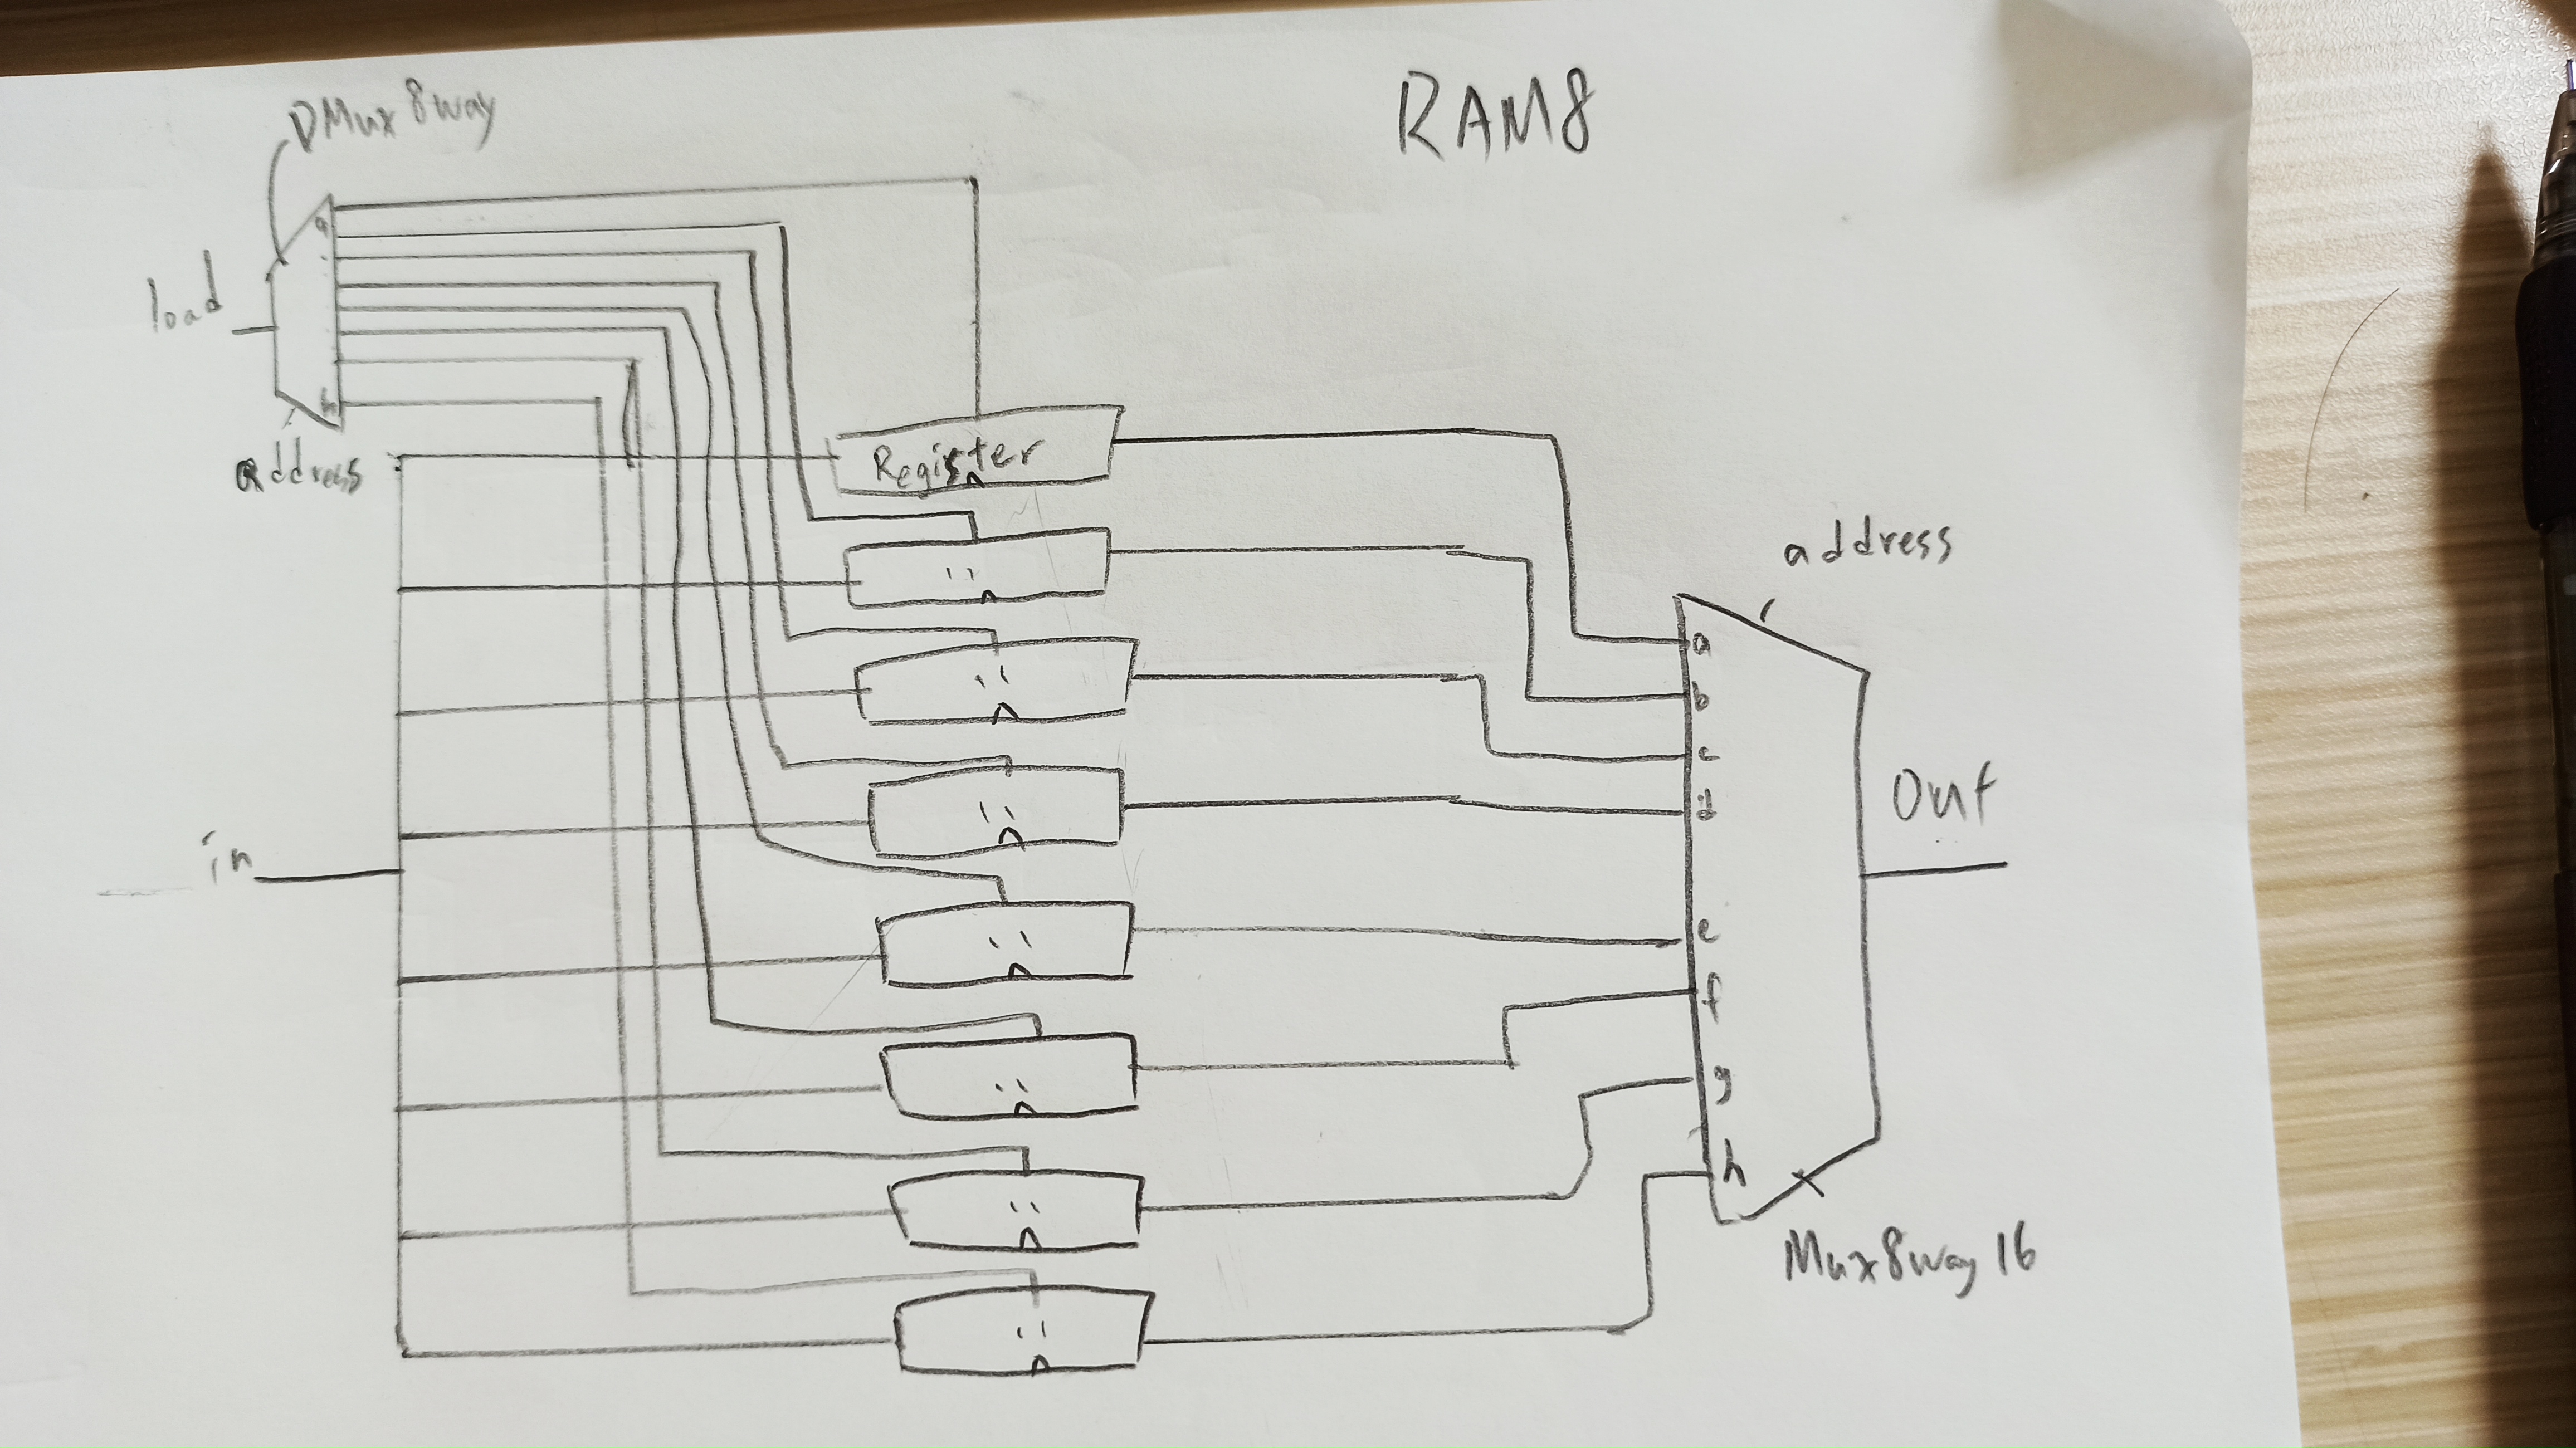 RAM8
DMux8way
a
load
h
address
Register
''
''
''
''
''
''
''
in
address
a
b
c
d
e
f
g
h
Out
Mux8way16